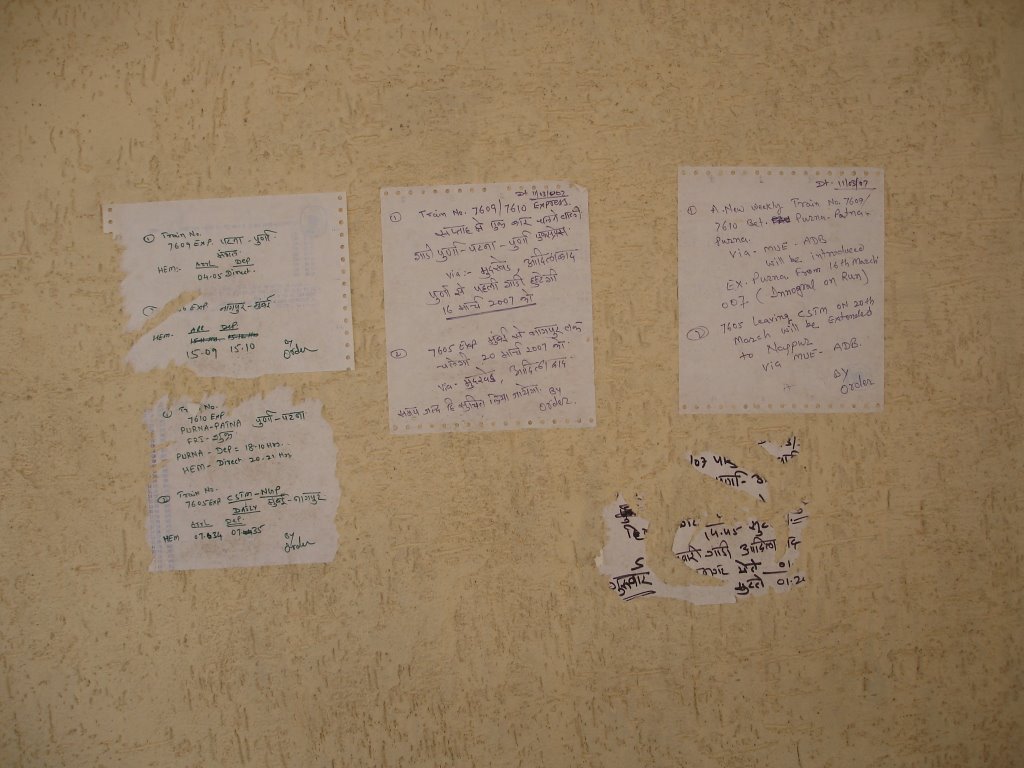 ① Train No.
7609 EXP पटना - पुर्णा
मंगल
HEM:- Arrl Dep
04.05 Direct.
EXP नागपुर - मुंबई
HEM. ARR Dep
15-09 15.10
By
Order
Tr No.
7610 EXP
PURNA-PATNA पुर्णा - पटना
FRI - शुक्र
PURNA - Dep = 18-10 Hrs.
HEM - Direct 20-21 Hrs
② Train No.
7605 EXP CSTM - NGP
DAILY मुंबई - नागपुर
Arrl Dep
HEM 07-34 07-35
By
Order
Dt 11/03/07
① Train No. 7609/7610 Express.
सप्ताह में एक बार चलने वाली
गाडी पुर्णा - पटना - पुर्णा एक्सप्रेस.
via:- मुदखेड, आदिलाबाद
पुर्णा से पहली गाडी छुटेगी
16 मार्च 2007 को
② 7605 EXP मुंबई से नागपुर तक
चलेगी 20 मार्च 2007 को.
via - मुदखेड, आदिलाबाद
किया जायेगा. By
Order.
Dt - 11/03/07
① A New weekly Train No. 7609/
7610 Bet. Purna - Patna -
Purna.
via - MUE - ADB
will be introduced
Ex. Purna From 16th March
007. ( Innogral on Run)
② 7605 Leaving CSTM on 20th
March will be Extended
to Nagpur
via MUE - ADB.
By
Order
14.45
गाडी
01.
गुरुवार
01.2